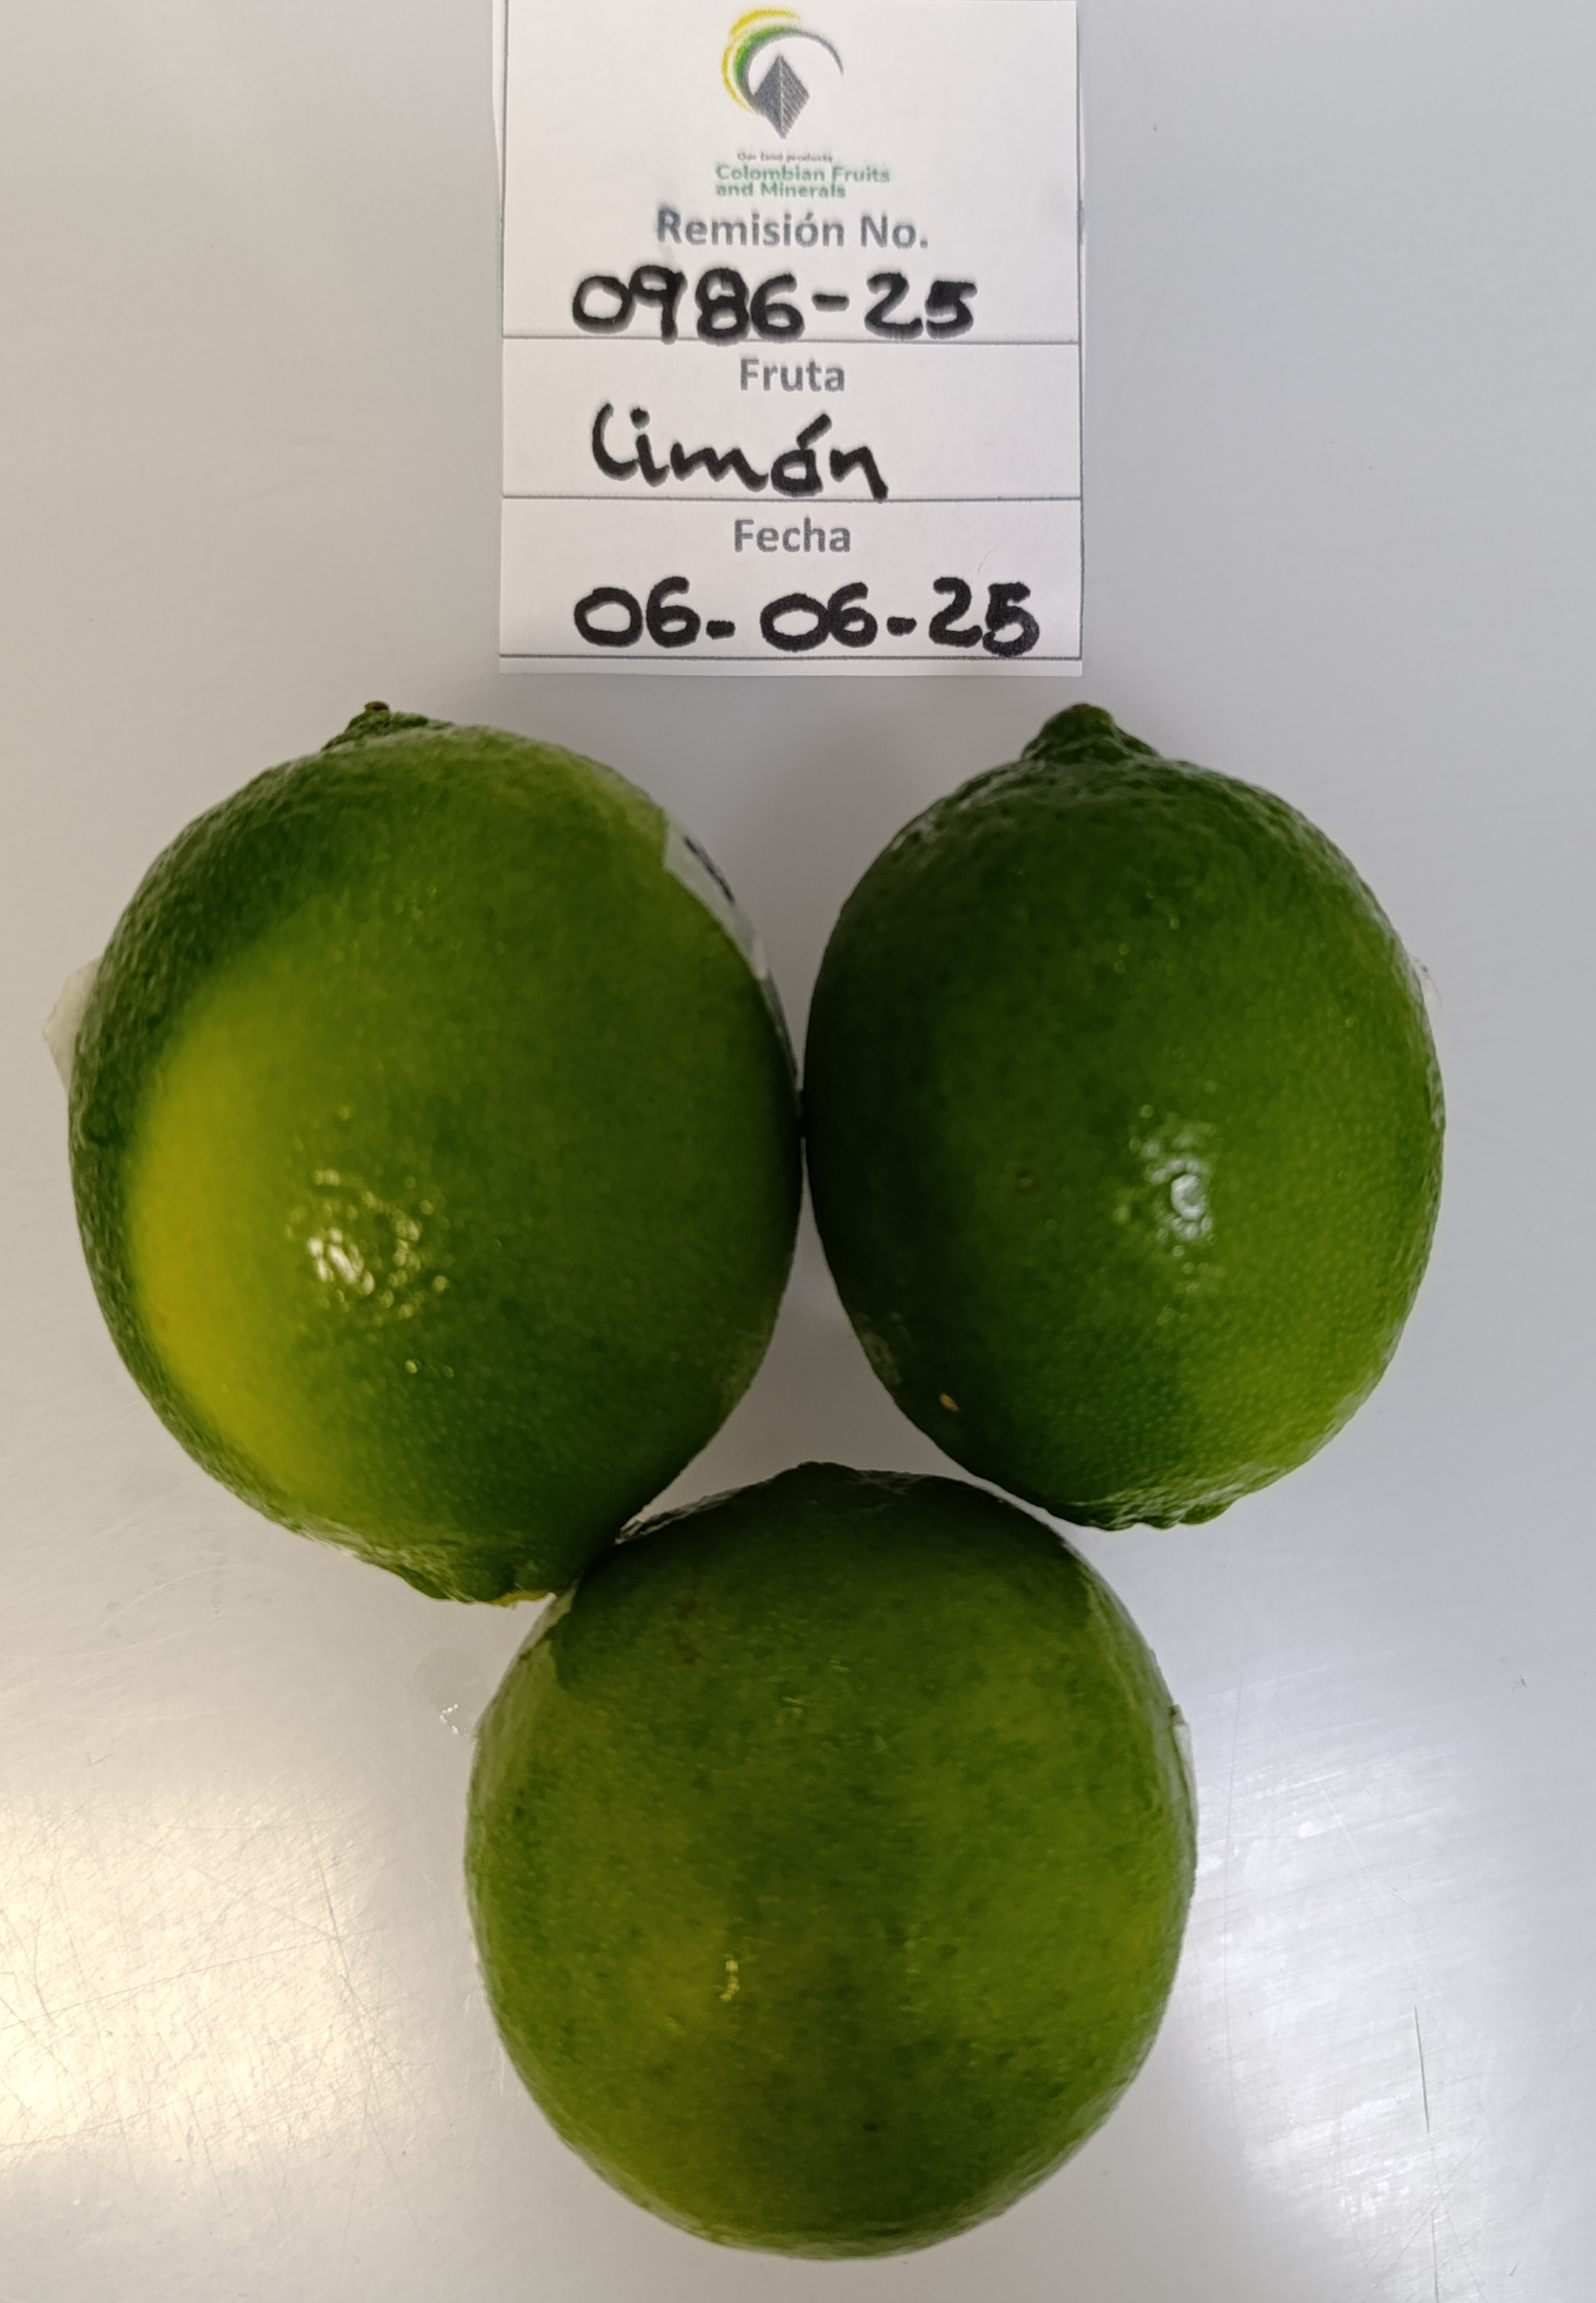 Our land products
Colombian Fruits
and Minerals
Remisión No.
0986-25
Fruta
Limón
Fecha
06-06-25